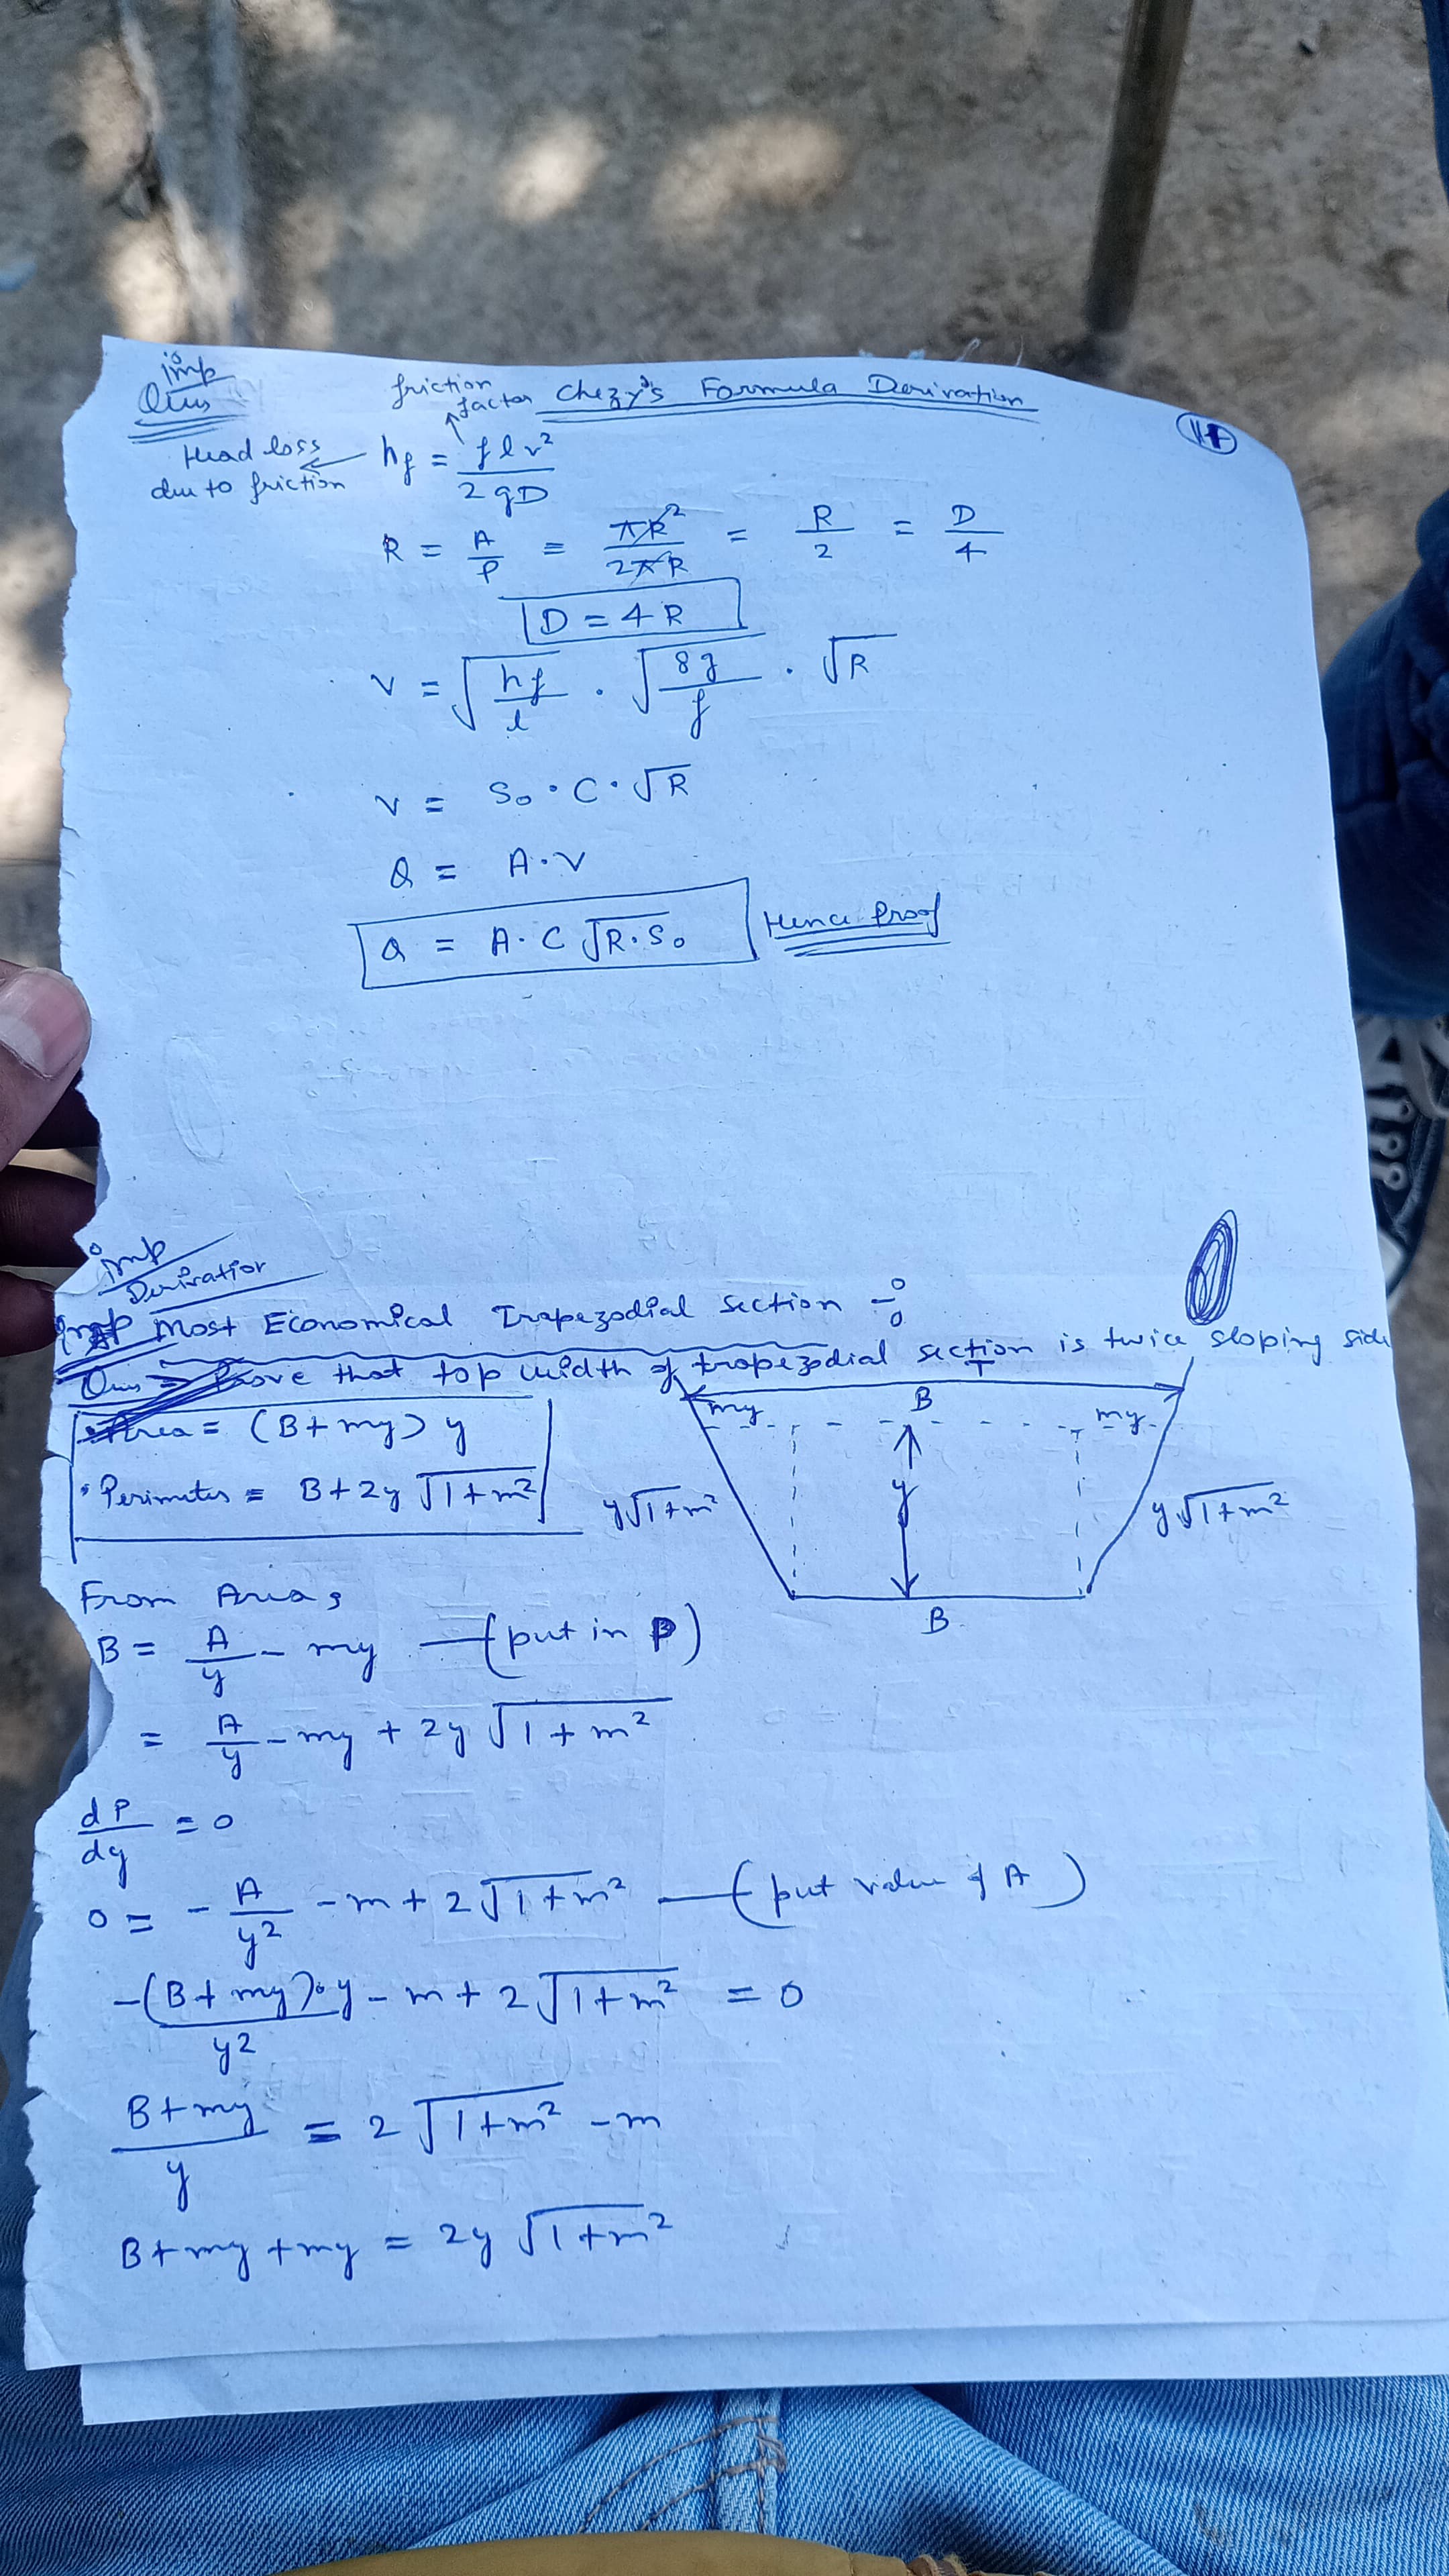 imp
Ques
friction
factor
Chezy's Formula Derivation
Head loss
due to friction
hf = f l v² / 2 g D
R = A/P = πR²/2πR = R/2 = D/4
D = 4 R
V = √(hf/l) · √(8g/f) · √R
V = So · C · √R
Q = A · V
Q = A · C √R · So
Hence Proof
imp
Derivation
imp Most Economical Trapezodial section :-
Ques → Prove that top width of trapezodial section is twice sloping side
T
my
B
my
Area = (B + my) y
• Perimeter = B + 2y √1+m²
y√1+m²
y
y√1+m²
B
From Area,
B = A/y - my — (put in P)
= A/y - my + 2y √1+m²
dP/dy = 0
0 = - A/y² - m + 2√1+m² — (put value of A)
-(B+my)·y/y² - m + 2√1+m² = 0
B+my/y = 2√1+m² - m
B + my + my = 2y √1+m²